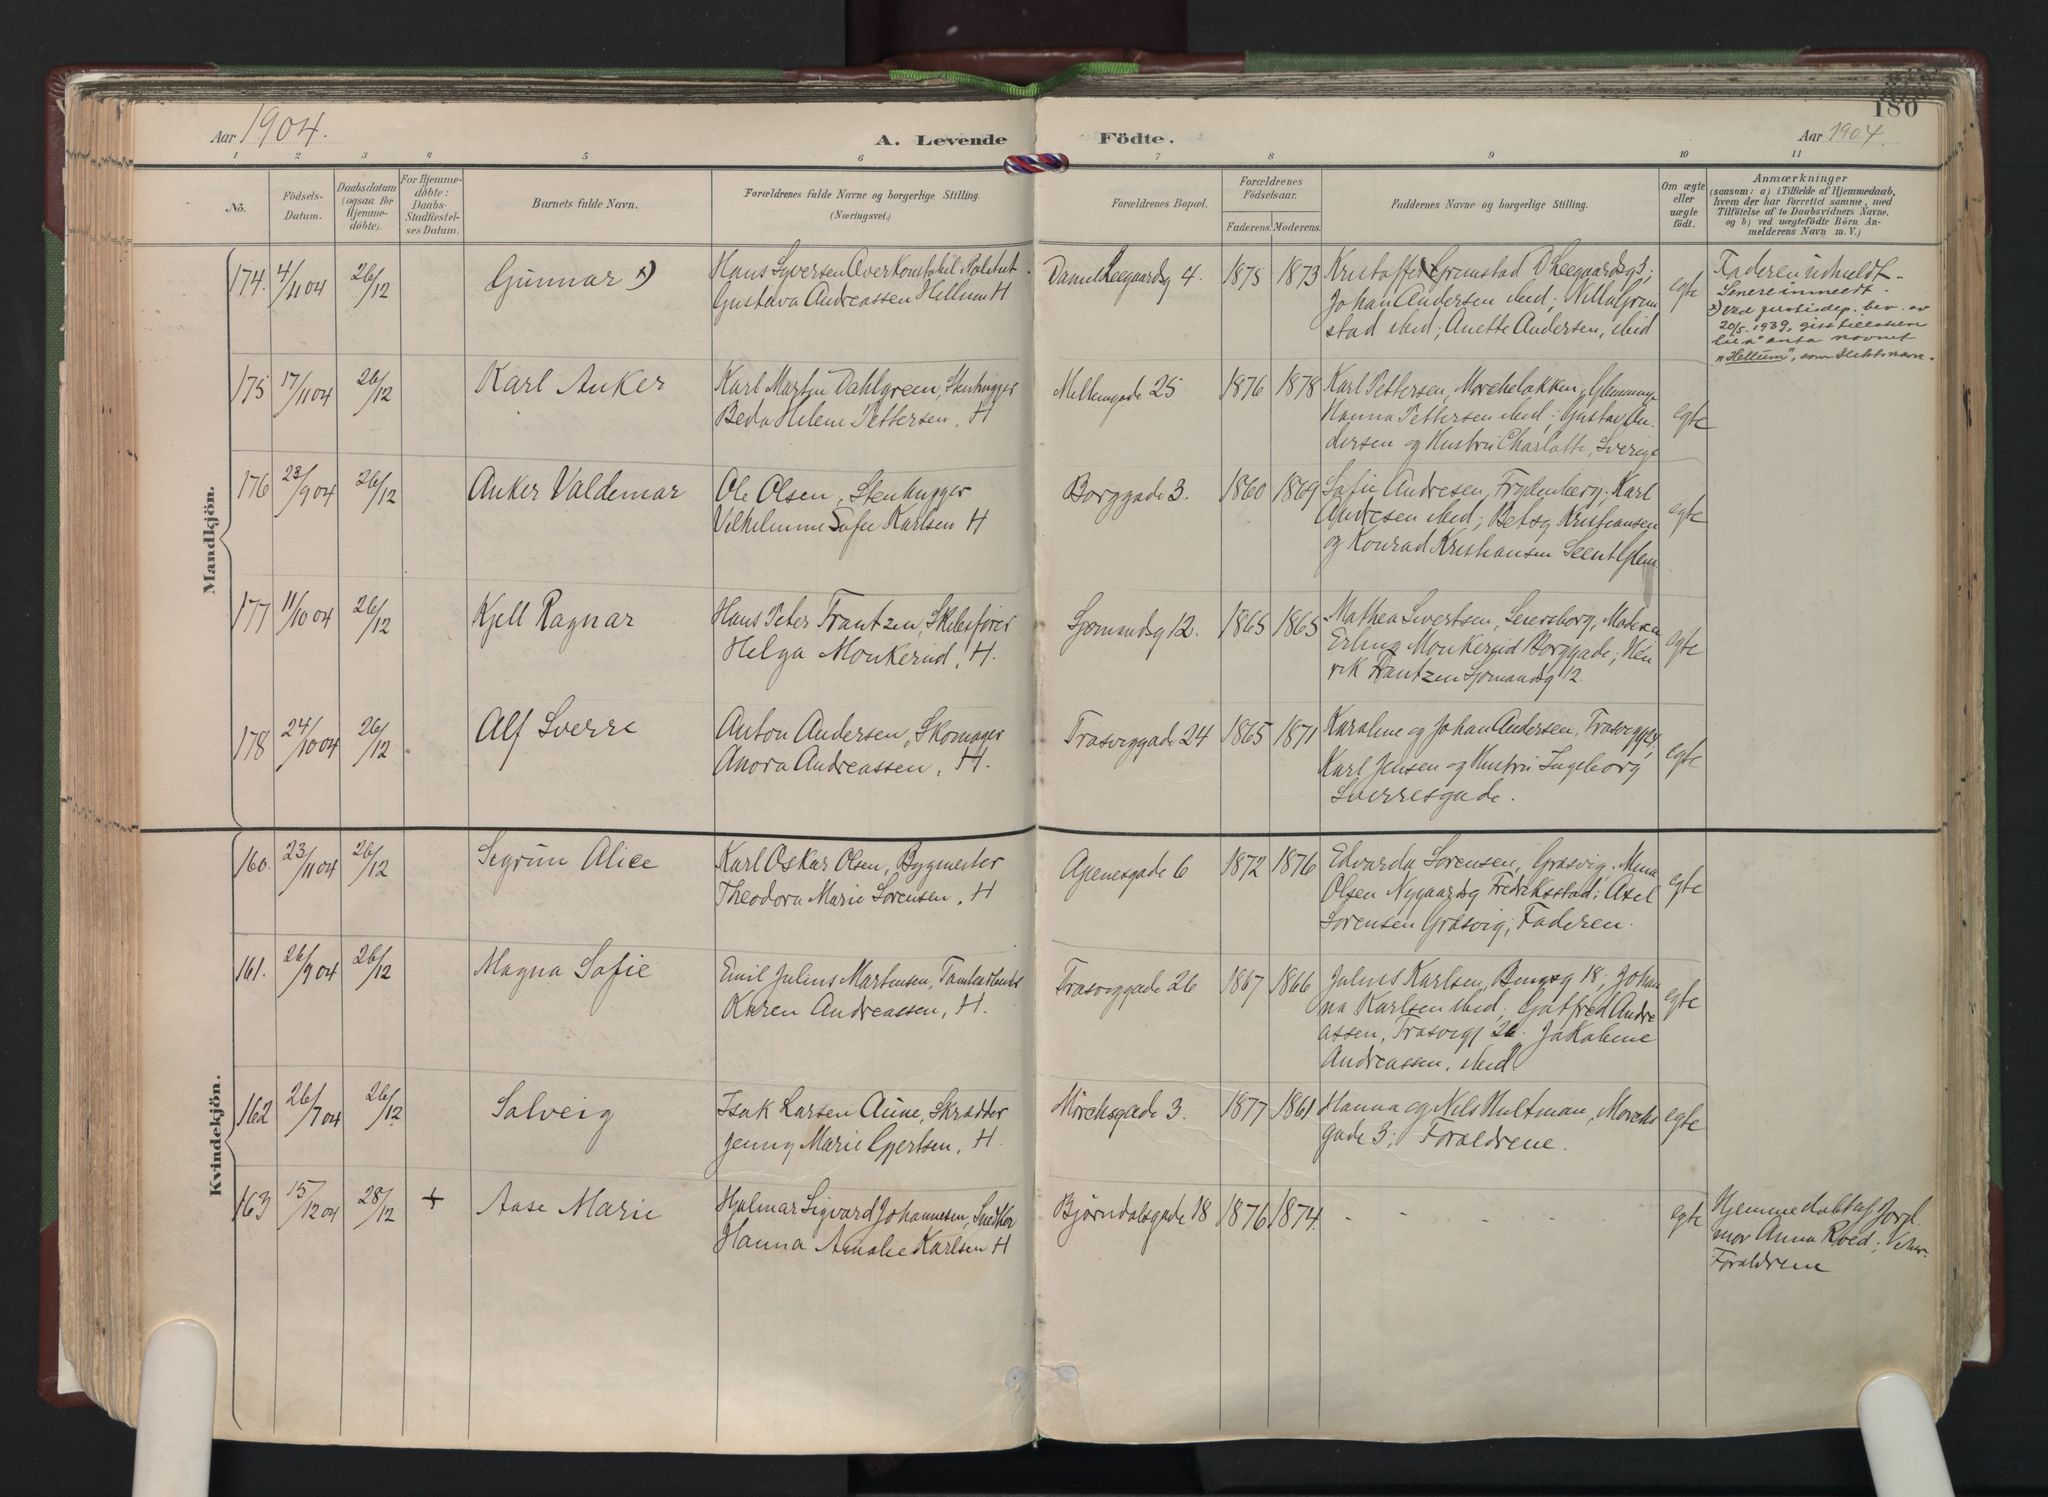 180
Aar 1904.
A. Levende Födte.
Aar 1904.
1 2 3 4 5 6 7 8 9 10 11
No.
Födsels-
Datum.
Daabsdatum
(ogsaa for
Hjemme-
döbte).
For Hjemme-
döbte:
Daabs-
Stadfæstel-
ses Datum.
Barnets fulde Navn.
Forældrenes fulde Navne og borgerlige Stilling.
(Næringsvei.)
Forældrenes Bopæl.
Forældrenes
Födselsaar.
Faderens. Moderens.
Faddernes Navne og borgerlige Stilling.
Om ægte
eller
uægte
födt.
Anmærkninger
(saasom: a) i Tilfælde af Hjemmedaab,
hvem der har forrettet samme, med
Tilföielse af to Daabsvidners Navne,
og b) ved uægtefödte Börn An-
melderens Navn m. V.)
Mandkjön.
174. 4/11 04 26/12 Gunnar x)
Hans Syversen Overkonstabel Politiet
Gustava Andreassen Hellum H
Daniel Leegaardsg 4. 1875 1873
Kristoffer Grimstad D Leegaardsg 3;
Johan Andersen ibid; Grim
stad ibid; Anette Andersen, ibid
egte
Faderen udmeldt
Senere inmeldt.
x) Ved justisdep. bev. av
20/5. 1939, gis tillatelse
til å anta navnet
"Hellum", som slektsnavn.
175 17/11 04 26/12 Karl Anker
Karl Martin Dahlgren, Stenhugger
Beda Helene Pettersen. H
Mellemgade 25 1876 1878
Karl Pettersen, Glemminge
Hanna Pettersen ibid; Gustav An-
dersen og Hustru Charlotte, Sverige
egte
176 23/9 04 26/12 Anker Valdemar
Ole Olsen, Stenhugger
Vilhelmine Sofie Karlsen H
Borggade 3. 1860 1869
Sofie Andresen, Frydenberg; Karl
Andresen ibid; Betsy Kristiansen
og Konrad Kristiansen Glem
egte
177 11/10 04 26/12 Kjell Ragnar
Hans Peter Frantzen, Skibsfører
Helga Monkerud, H.
Sjømandsg 12. 1865 1865
Mathea Sivertsen, Seiersborg, Moderen
Erling Monkerud Borggade; Hen
rik Frantzen Sjømandsg 12
egte
178 24/10 04 26/12 Alf Sverre
Anton Andersen, Skomager
Anora Andreassen. H.
Trosviggade 24 1865 1871
Karoline og Johan Andersen, Trosvigg 24;
Karl Jensen og Hustru Ingeborg
Sverresgade.
egte
Kvindekjön.
160. 23/11 04 26/12 Sigrun Alice
Karl Oskar Olsen, Bygmester
Theodora Marie Sørensen. H
Apenesgade 6 1872 1876
Edvarda Sørensen, Gråsvig; Mina
Olsen Nygaardsg Fredriksstad; Axel
Sørensen Gråsvig; Faderen.
egte
161. 26/9 04 26/12 Magna Sofie
Emil Julius Martinsen,
Karen Andreassen, H.
Trosviggade 26 1867 1866
Julius Karlsen, 18; Johan
na Karlsen ibid; Gotfred Andre
assen, Trosvigg 26. Jakobine
Andreassen, ibid
egte
162 26/7 04 26/12 Solveig
Isak Larsen Aune, Skrædder
Jenny Marie Gjertsen, H.
Mörchsgade 3. 1877 1861
Hanna og Nils Hultman, Mörchs
gade 3; Forældrene.
egte
163 15/12 04 28/12 + Aase Marie
Hjalmar Sigvard Johannesen, Snedker
Hanna Amalie Karlsen H
Bjørndalsgade 18 1876 1874.
- - - - -
egte
Hjemmedøbt af Jord
mor Anna Roed; Vidner
Forældrene